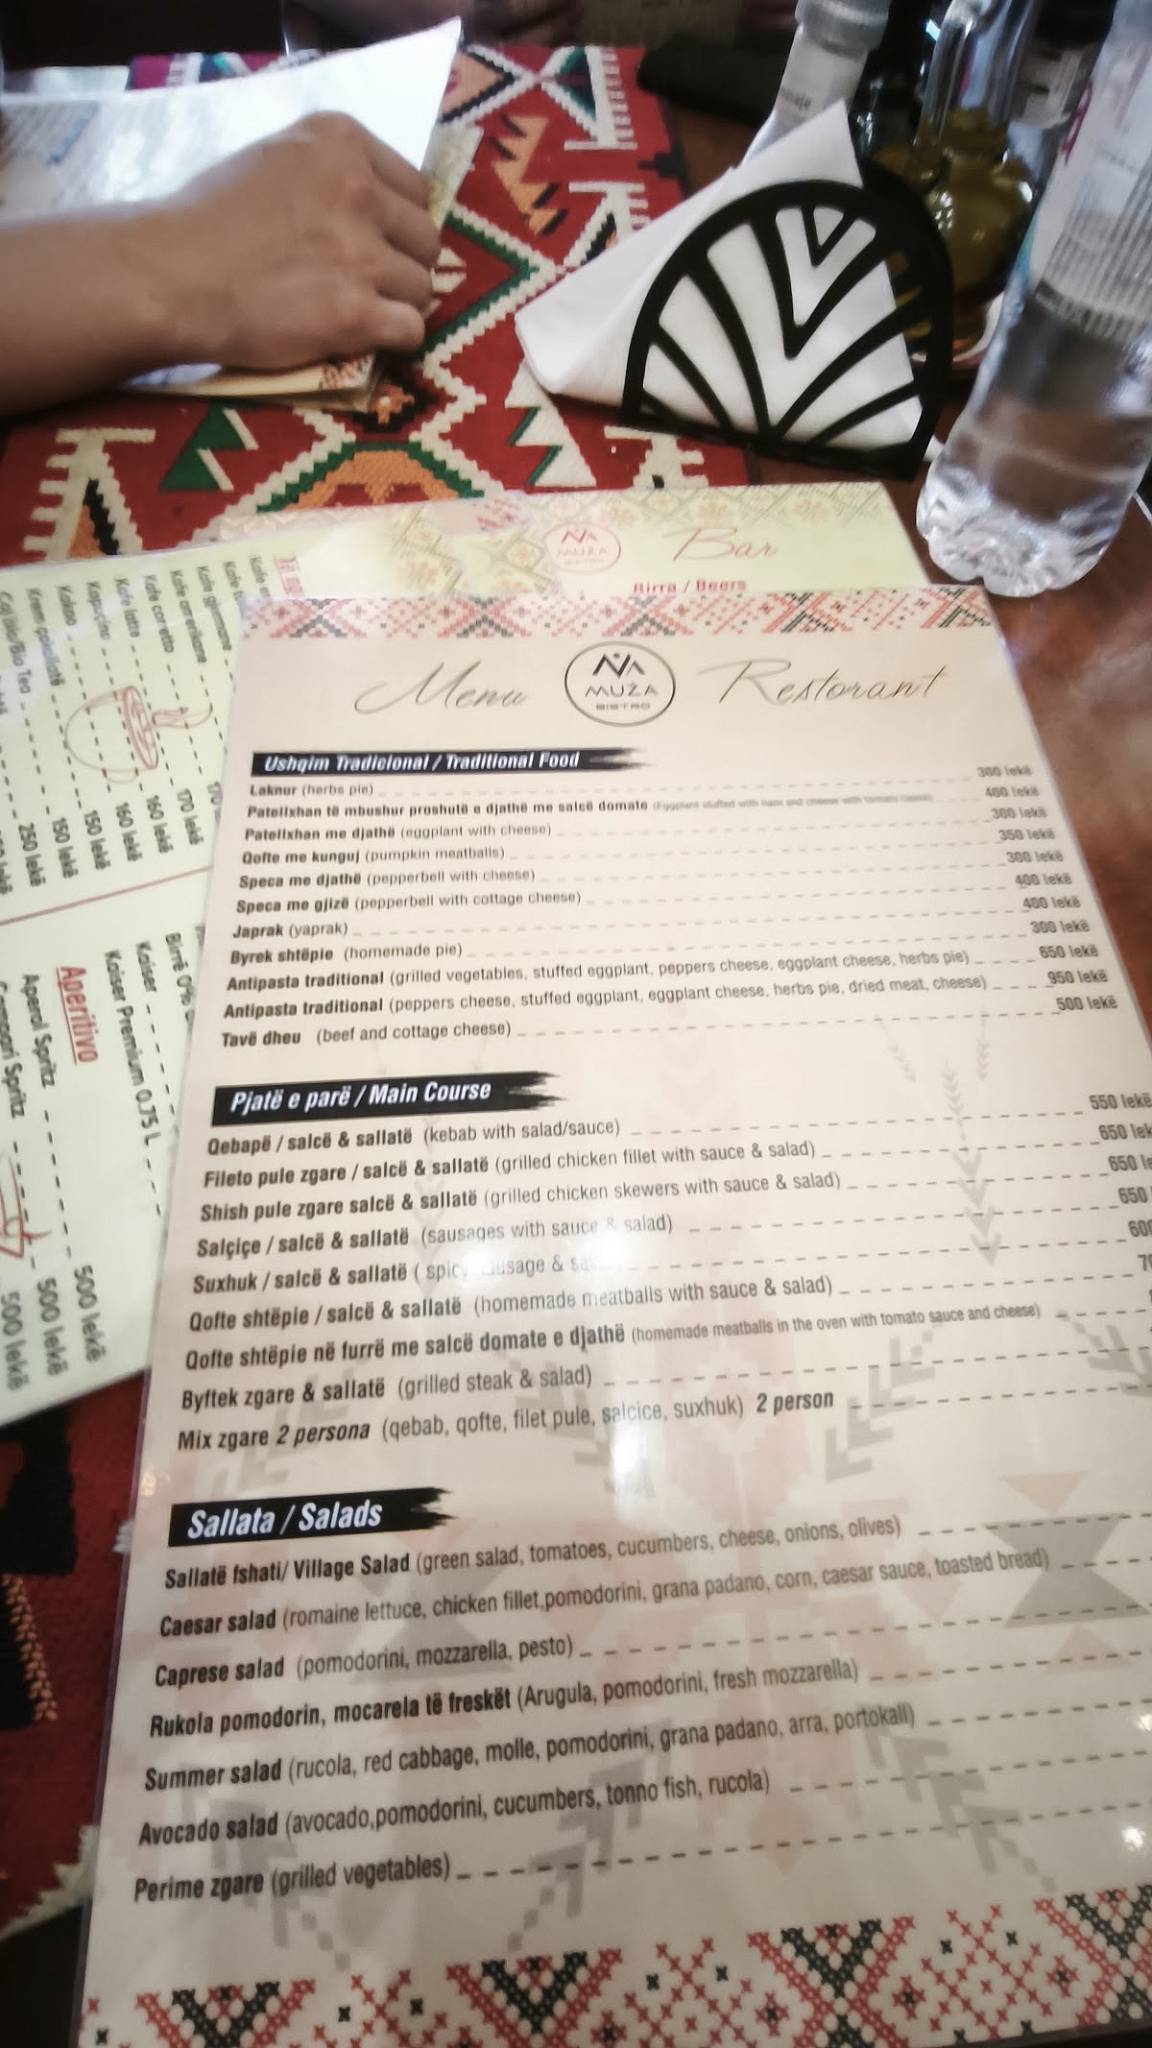 Bar
MUZA
BISTRO
Birra / Beers
Menu
MUZA
BISTRO
Restorant
Ushqim Tradicional / Traditional Food
Laknur (herbs pie) 300 lekë
Patellxhan të mbushur proshutë e djathë me salcë domate (Eggplant stuffed with ham and cheese with tomato sauce) 400 lekë
Patellxhan me djathë (eggplant with cheese) 300 lekë
Qofte me kunguj (pumpkin meatballs) 350 lekë
Speca me djathë (pepperbell with cheese) 300 lekë
Speca me gjizë (pepperbell with cottage cheese) 400 lekë
Japrak (yaprak) 400 lekë
Byrek shtëpie (homemade pie) 300 lekë
Antipasta traditional (grilled vegetables, stuffed eggplant, peppers cheese, eggplant cheese, herbs pie) 650 lekë
Antipasta traditional (peppers cheese, stuffed eggplant, eggplant cheese, herbs pie, dried meat, cheese) 950 lekë
Tavë dheu (beef and cottage cheese) 500 lekë
Pjatë e parë / Main Course
Qebapë / salcë & sallatë (kebab with salad/sauce) 550 lekë
Fileto pule zgare / salcë & sallatë (grilled chicken fillet with sauce & salad) 650 lek
Shish pule zgare salcë & sallatë (grilled chicken skewers with sauce & salad) 650 le
Salçiçe / salcë & sallatë (sausages with sauce & salad) 650
Suxhuk / salcë & sallatë ( spicy sausage & 600
Qofte shtëpie / salcë & sallatë (homemade meatballs with sauce & salad)
Qofte shtëpie në furrë me salcë domate e djathë (homemade meatballs in the oven with tomato sauce and cheese)
Byftek zgare & sallatë (grilled steak & salad)
Mix zgare 2 persona (qebab, qofte, filet pule, salcice, suxhuk) 2 person
Sallata / Salads
Sallatë fshati/ Village Salad (green salad, tomatoes, cucumbers, cheese, onions, olives)
Caesar salad (romaine lettuce, chicken fillet,pomodorini, grana padano, corn, caesar sauce, toasted bread)
Caprese salad (pomodorini, mozzarella, pesto)
Rukola pomodorin, mocarela të freskët (Arugula, pomodorini, fresh mozzarella)
Summer salad (rucola, red cabbage, molle, pomodorini, grana padano, arra, portokall)
Avocado salad (avocado,pomodorini, cucumbers, tonno fish, rucola)
Perime zgare (grilled vegetables)
Kafe gjermane 170
Kafe amerikane 170 lekë
Kafe corretto 160 lekë
Kafe latte 160 lekë
Kapuçino 150 lekë
Kakao 150 lekë
Krem çokollatë 250 lekë
Caj bio/Bio Tea
Birrë 0%
Kaiser
Kaiser Premium 0.75 L
Aperitivo
Aperol Spritz 500 lekë
Campari Spritz 500 lekë
500 lekë